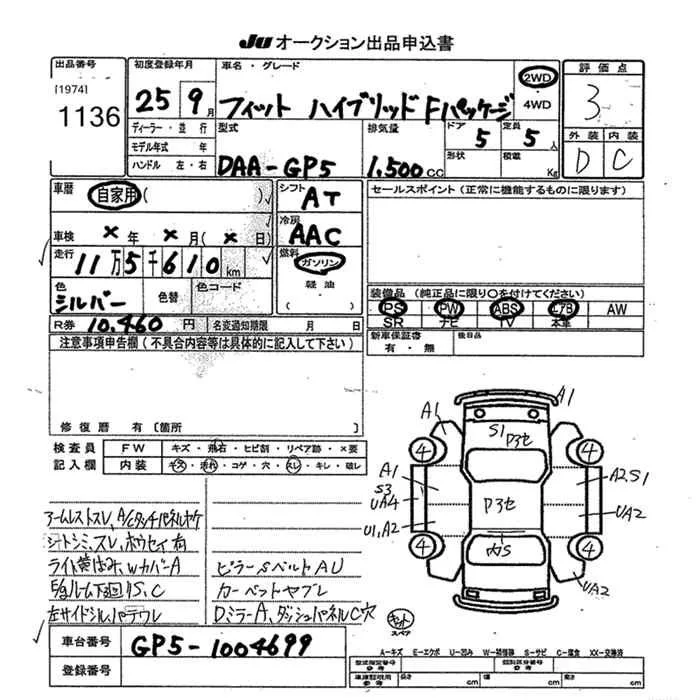 Ju オークション出品申込書
出品番号
[1974]
1136
初度登録年月
25 9月
車名・グレード
フィット ハイブリッド Fパッケージ
2WD
・
4WD
評価点
3
外装 内装
D C
ディーラー・並行
モデル年式 年
ハンドル 左・右
型式
DAA-GP5
排気量
1,500cc
ドア
5
形状
定員
5人
積載
Kg
車歴
自家用( )
シフト
AT
冷房
AAC
車検 ×年 ×月(×日)
走行 11万5千610km
燃料
ガソリン
・
軽油
( )
色
シルバー
色替
色コード
R券 10,460円
名変通知期限 月 日
セールスポイント (正常に機能するものに限ります)
装備品 (純正品に限り○を付けてください)
PS PW ABS エアB AW
SR ナビ TV 本革
新車保証書
有・無
後日品
注意事項申告欄 (不具合内容等は具体的に記入して下さい)
修復歴 有 [箇所
検査員
記入欄
FW キズ・飛石・ヒビ割・リペア跡・×要
内装 キズ・汚れ・コゲ・穴・スレ・キレ・破レ
アームレストスレ、A/Cタッチパネルヤケ
シートシミ、スレ、ホウセイ有
ライト黄ばみ、Wカバー A
左サイドシル、パテウレ
ピラーSベルトAU
カーペットヤブレ
Dミラー A、ダッシュパネルC穴
A1
A1
S1
P3セ
4
4
A1
S3
UA4
P3セ
A2S1
UA2
U1,A2
内S
4
4
UA2
キット
スペア
車台番号 GP5-1004699
登録番号
A=キズ E=エクボ U=凹み W=補修跡 S=サビ C=腐食 XX=交換済
型式指定番号
参考
類別区分番号
参考
車庫証明用
参考
長さ cm
幅 cm
高さ cm